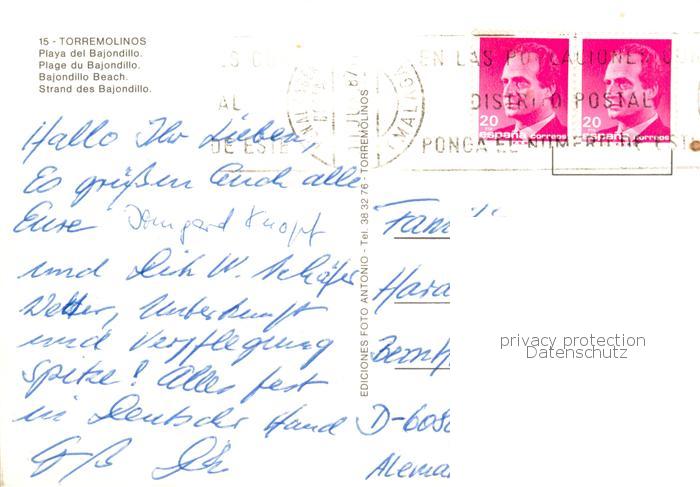 15 - TORREMOLINOS
Playa del Bajondillo.
Plage du Bajondillo.
Bajondillo Beach.
Strand des Bajondillo.
EN LAS POBLACIONES CON
AL DISTRITO POSTAL
DE ESTE PONGA EL NUMERO DE ESTE
MALAGA
20 españa correos
20 españa correos
Hallo Ihr Lieben,
Es grüßen Euch alle
Eure Irmgard Knopf
und Dirk W. Schäfer
Wetter, Unterkunft
und Verpflegung
Spitze! Alles fest
in Deutscher Hand
EDICIONES FOTO ANTONIO - Tel. 38 32 76 - TORREMOLINOS
Fam
Hara
Bernh
D-608
Alema
privacy protection
Datenschutz